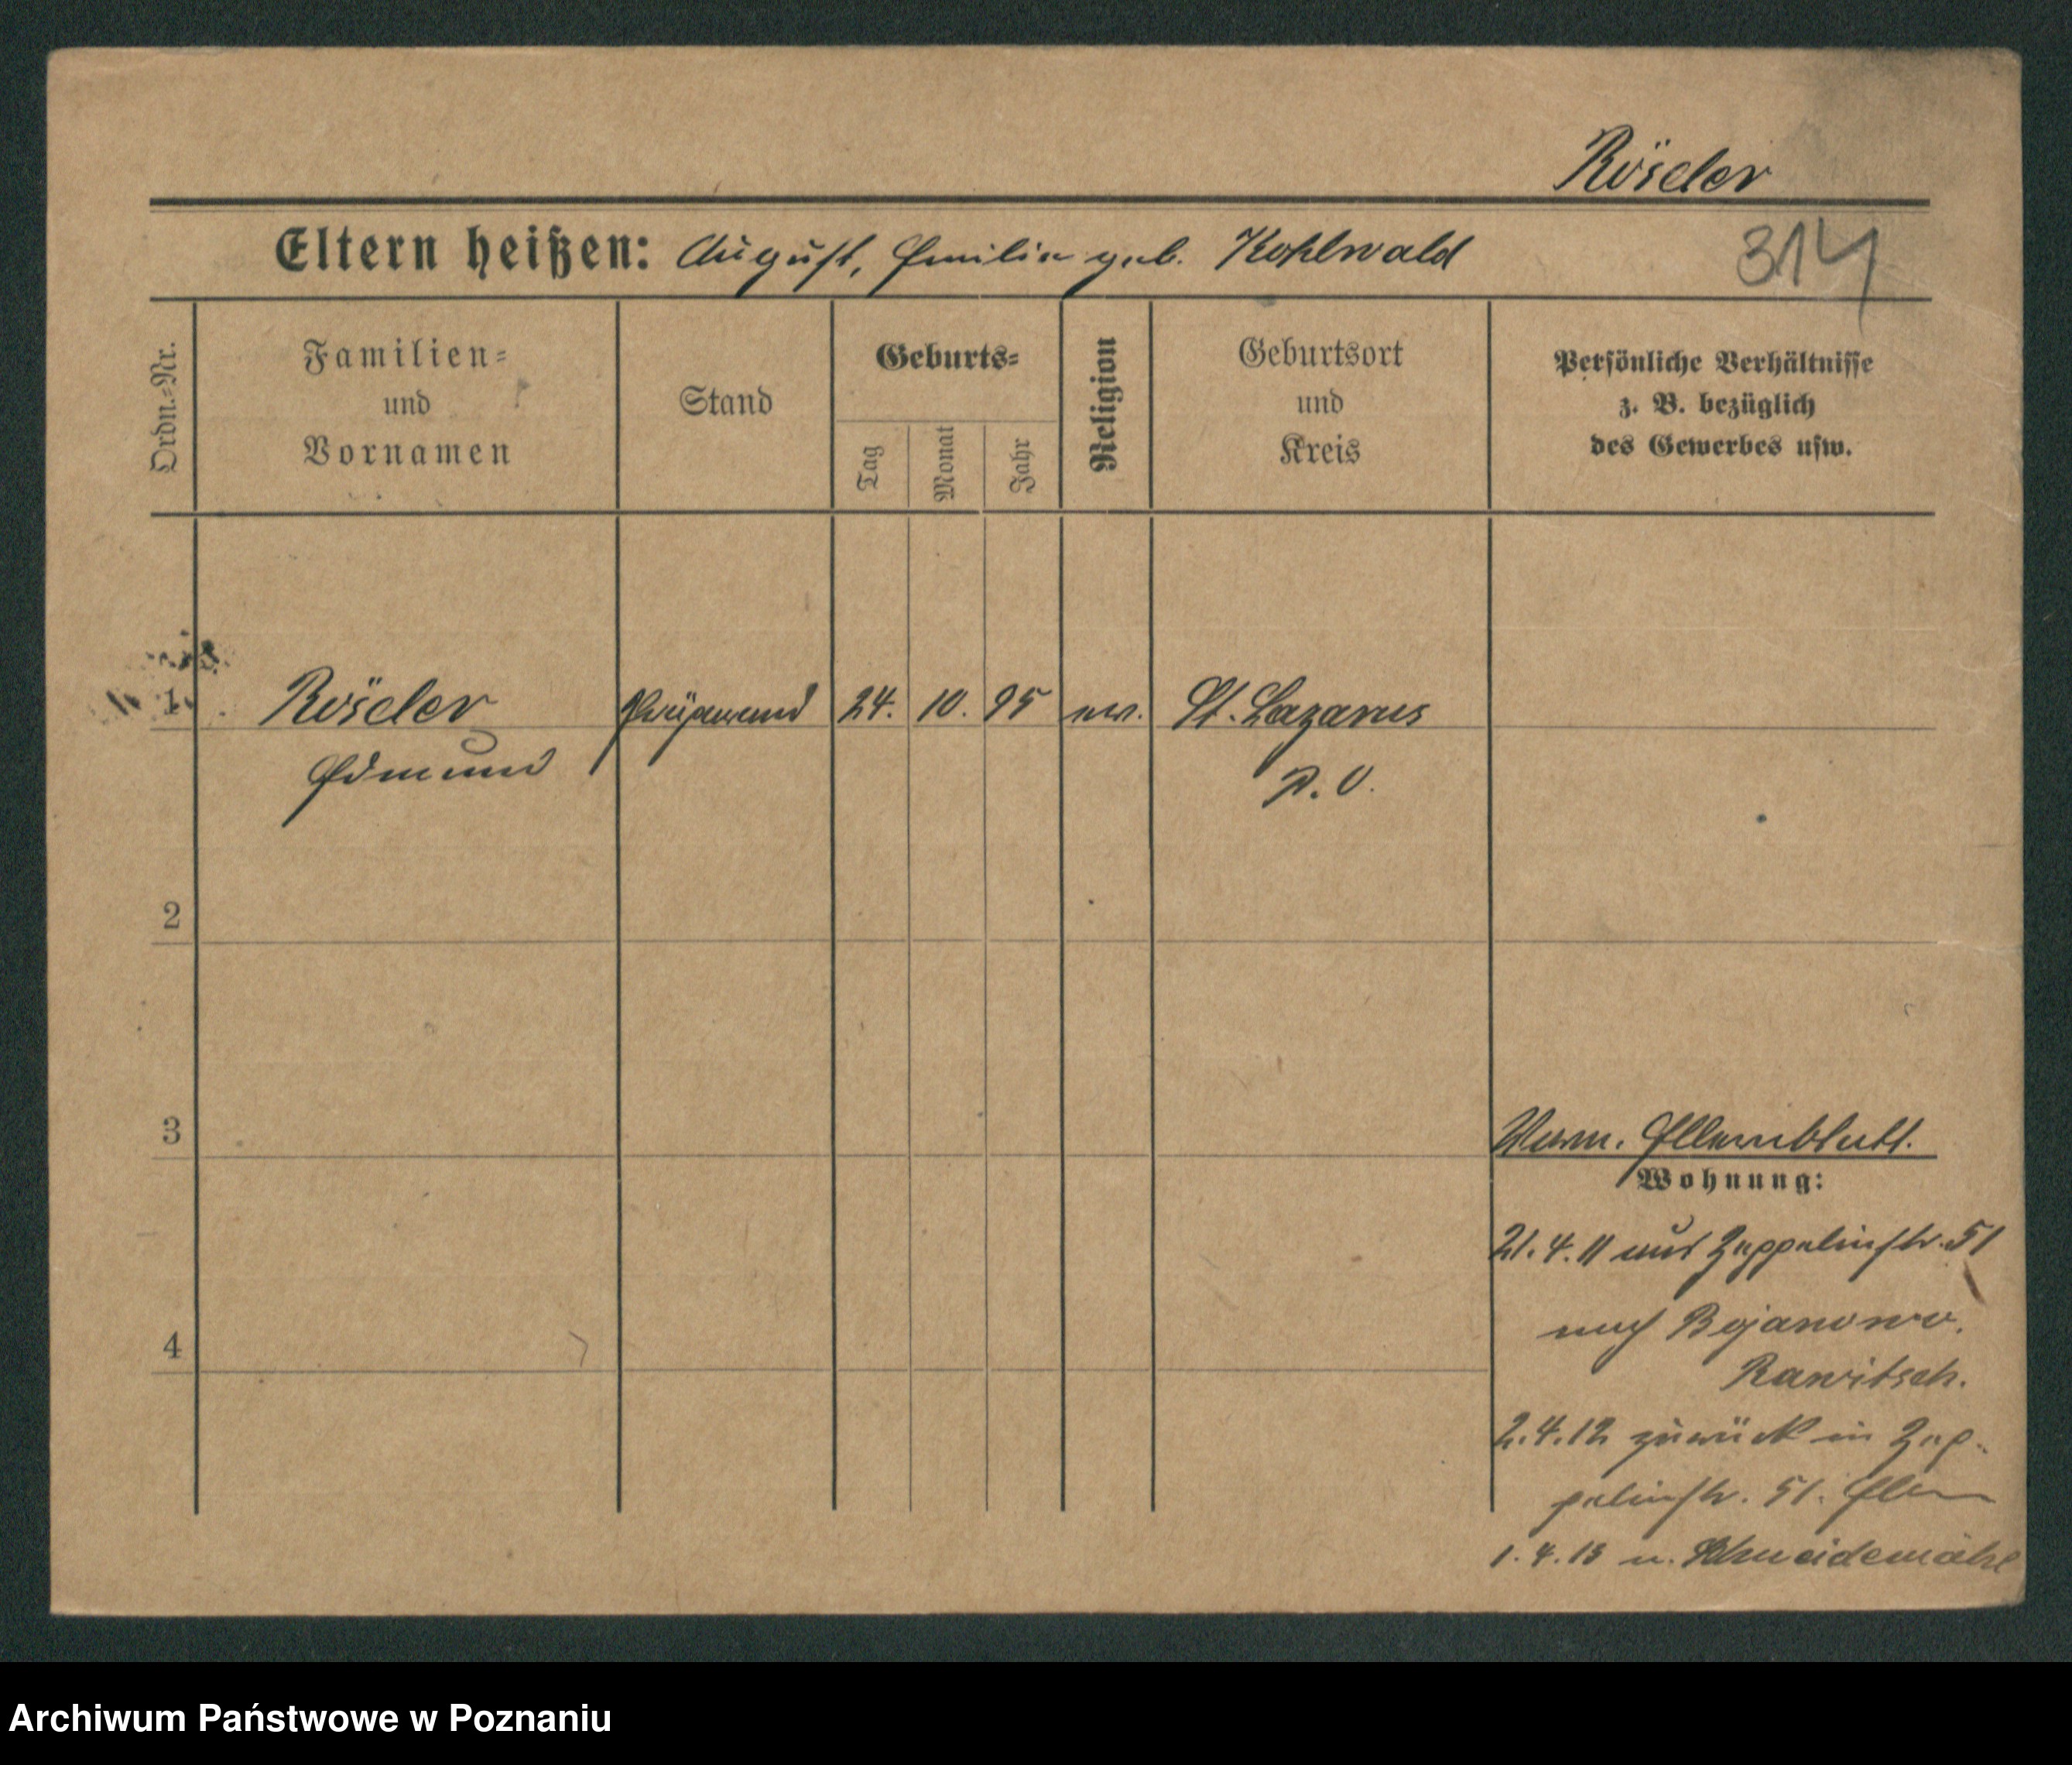 Röseler
Eltern heißen: August, Emilie geb. Kohlwald
314
Ordn.-Nr.
Familien-
und
Vornamen
Stand
Geburts-
Tag
Monat
Jahr
Religion
Geburtsort
und
Kreis
Persönliche Verhältnisse
z. B. bezüglich
des Gewerbes usw.
1 Röseler Präparand 24. 10. 95 ev. St. Lazarus
Edmund P. O.
2
3
Elternblatt.
Wohnung:
21.4.11 aus Zeppelinstr. 51
nach Bojanowo,
Rawitsch.
4
2.4.12 zurück in Zep-
pelinstr. 51. Eltern
1.4.13 n. Schneidemühl
Archiwum Państwowe w Poznaniu